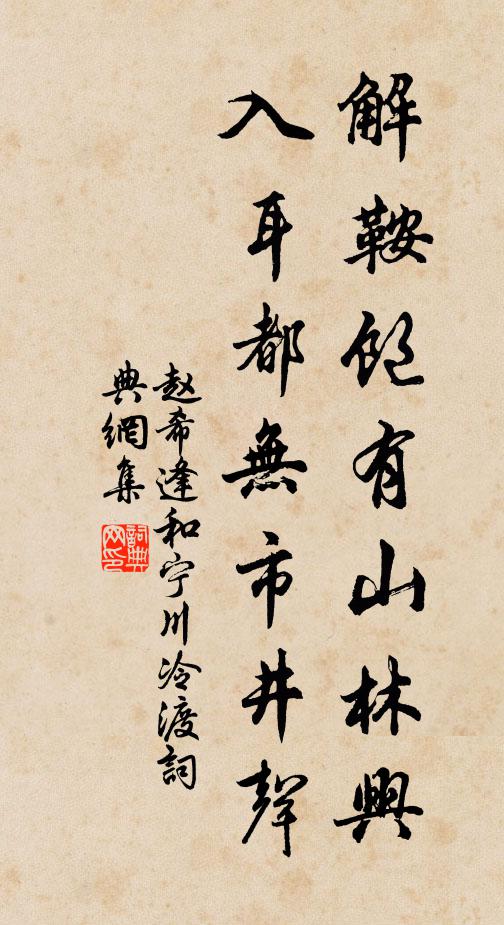 解鞍飽有山林興
入耳都無市井聲
赵希逢和宁川冷渡詞
典網集
詞典
网印